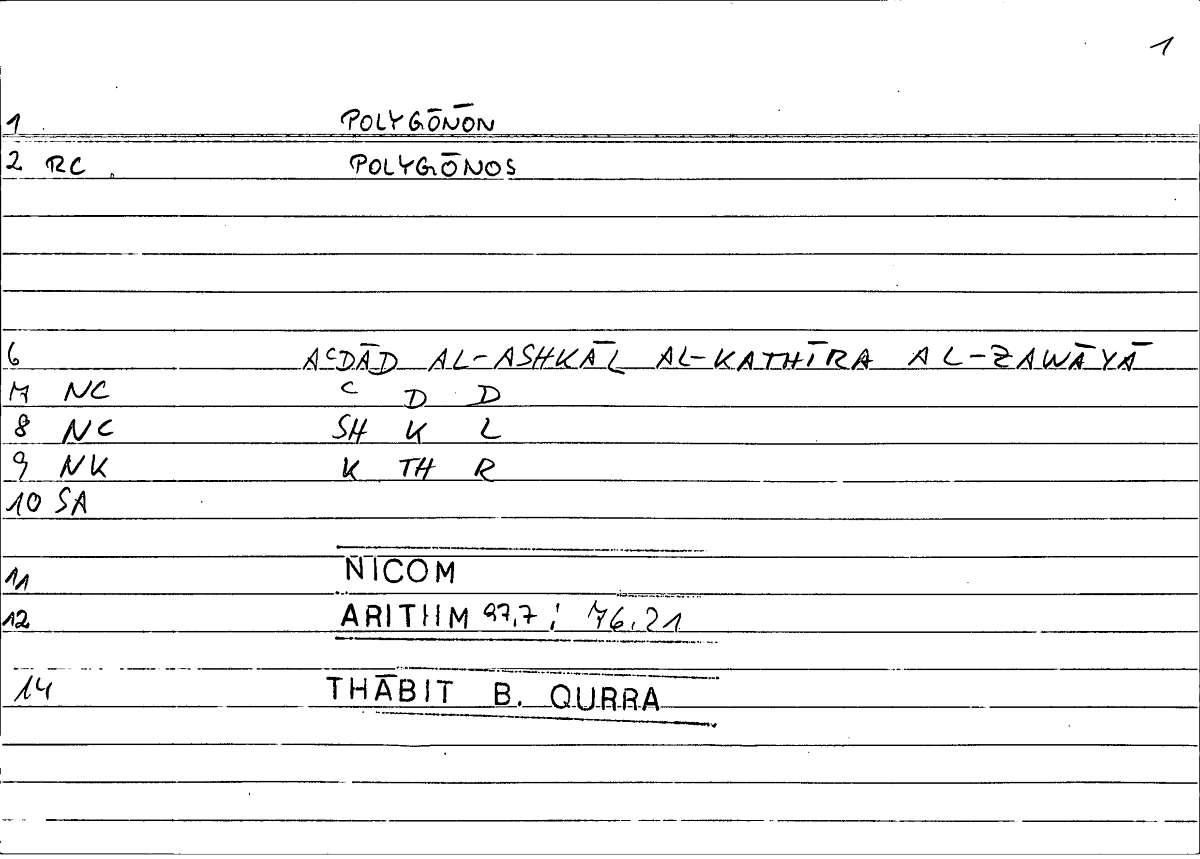 1
1 POLYGŌNŌN
2 RC POLYGŌNOS
6 AᶜDĀD AL-ASHKĀL AL-KATHĪRA AL-ZAWĀYĀ
7 NC ᶜ D D
8 NC SH K L
9 NK K TH R
10 SA
11 NICOM
12 ARITHM 97,7; 76.21
14 THĀBIT B. QURRA